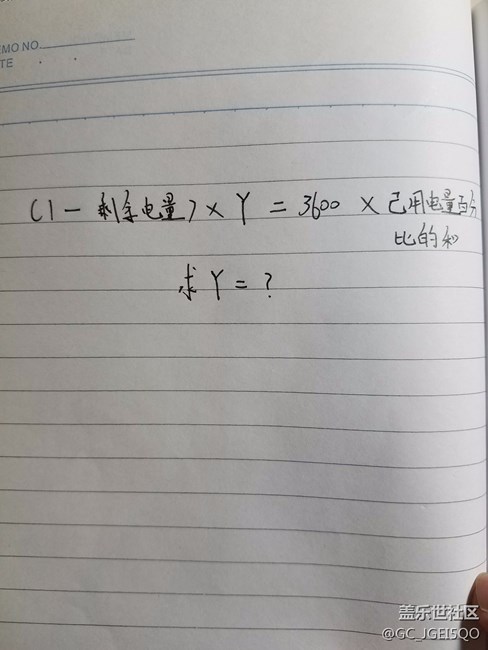 MO NO.
TE
(1-剩余电量)×Y=3600×已用电量百分
比的和
求Y=?
盖乐世社区
@GC_JGEI5QO